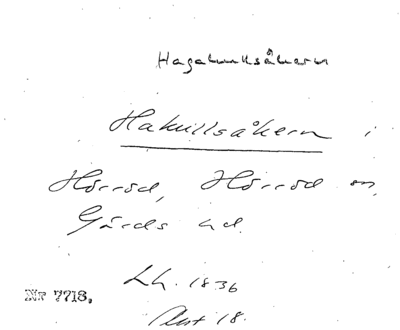 Hagakullsåkern
Hakullsåkern i
Hörröd, Hörröd sn,
Gärds hd.
Lh. 1836
Nr 7718.
Akt 18.